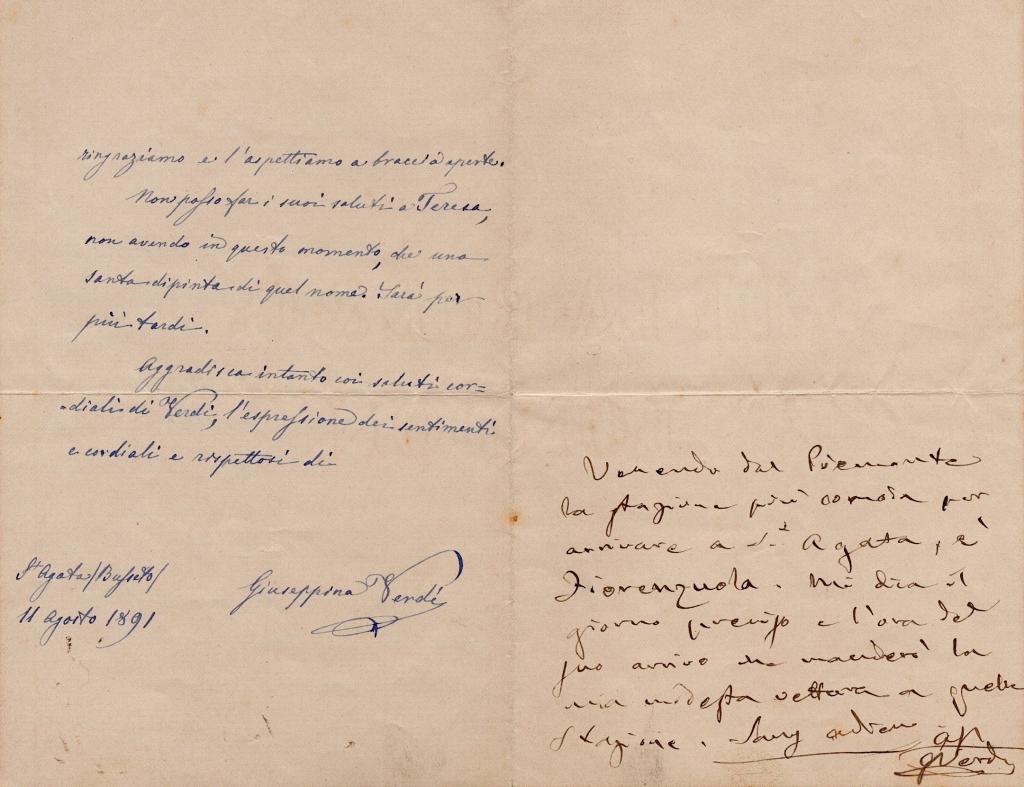 ringraziamo e l'aspettiamo a braccia aperte.
Non posso far i suoi saluti a Teresa,
non avendo in questo momento, che una
santa dipinta di quel nome. Sarà per
più tardi.
Aggradisca intanto coi saluti cor=
=diali di Verdi, l'espressione dei sentimenti
e cordiali e rispettosi di
St Agata /Busseto/
11 Agosto 1891
Giuseppina Verdi
Venendo dal Piemonte
la stazione più comoda per
arrivare a St Agata, è
Fiorenzuola. Mi dia il
giorno preciso e l'ora del
suo arrivo e manderò la
mia modesta vettura a quella
Stazione. adieu
GVerdi